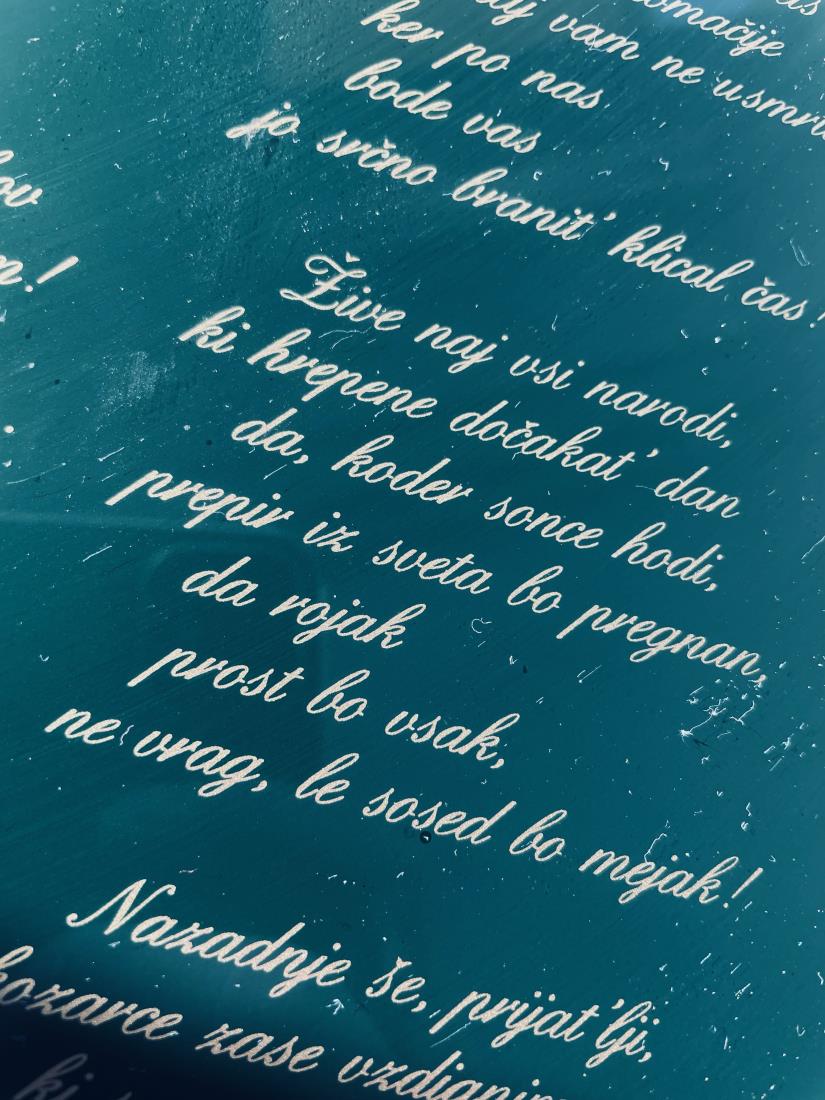 ov
!
vam ne
ker po nas
bode vas
jo srčno branit' klical čas!
Žive naj vsi narodi,
ki hrepene dočakat' dan
da, koder sonce hodi,
prepir iz sveta bo pregnan,
da rojak
prost bo vsak,
ne vrag, le sosed bo mejak!
Nazadnje še, prijat'lji,
kozarce zase vzdignimo
ki